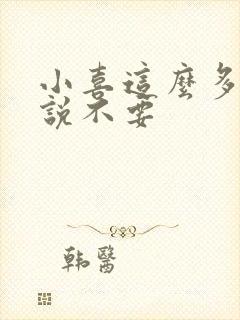 小喜這麼多
説不要
韓醫